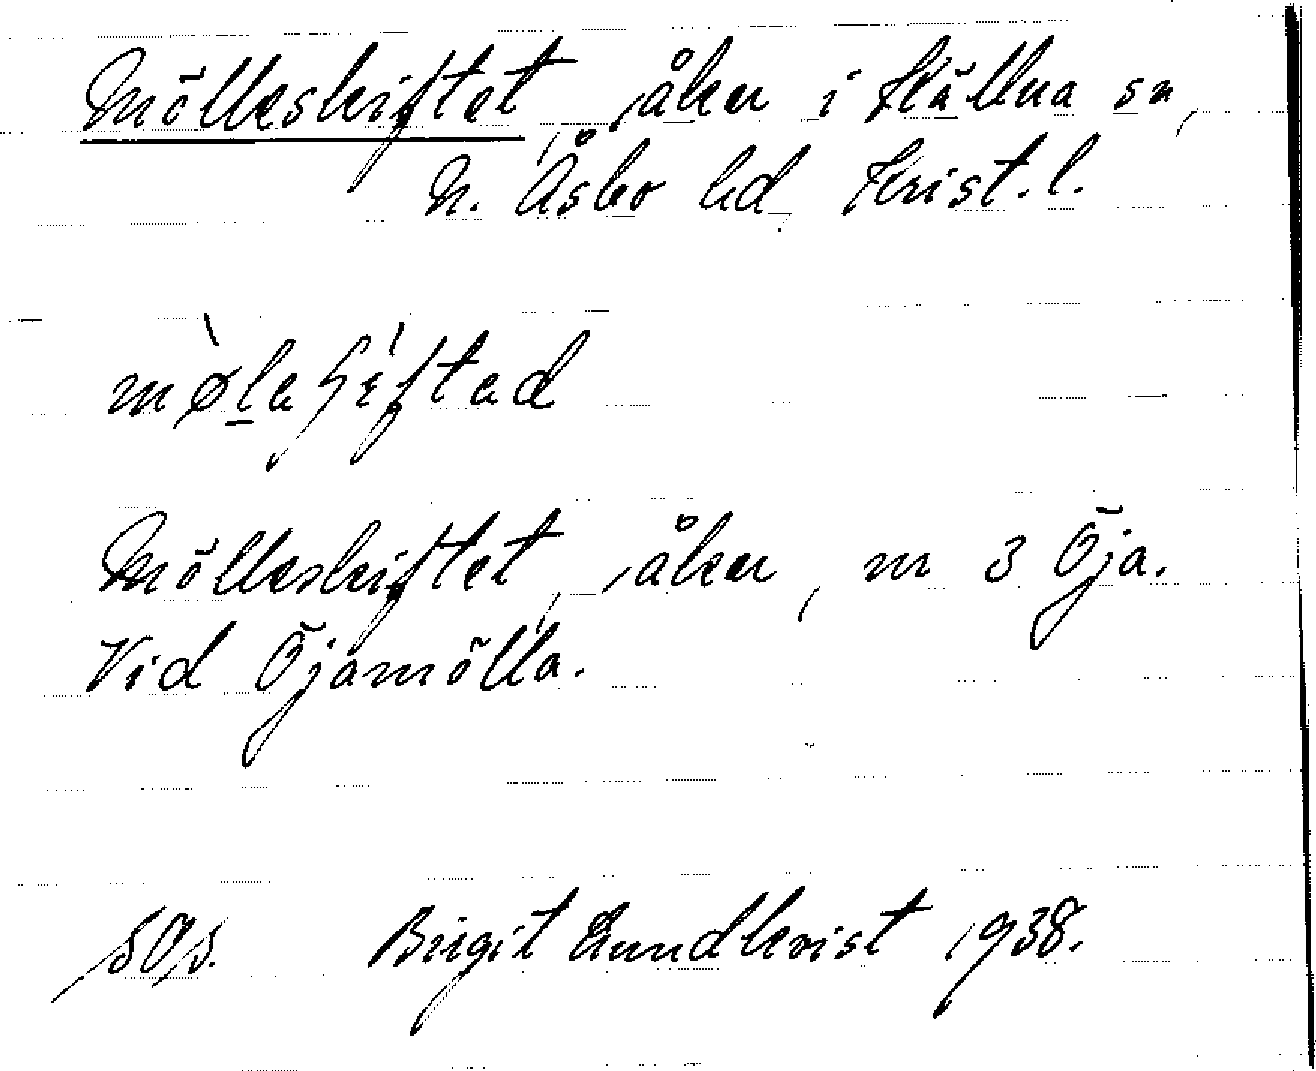 Mölleskiftet, åker i Källna sn,
N. Åsbo hd Krist. l.
Mölleskiftet, åker, nr 3 Öja.
Vid Öjamölla.
Birgit Lundkvist 1938.